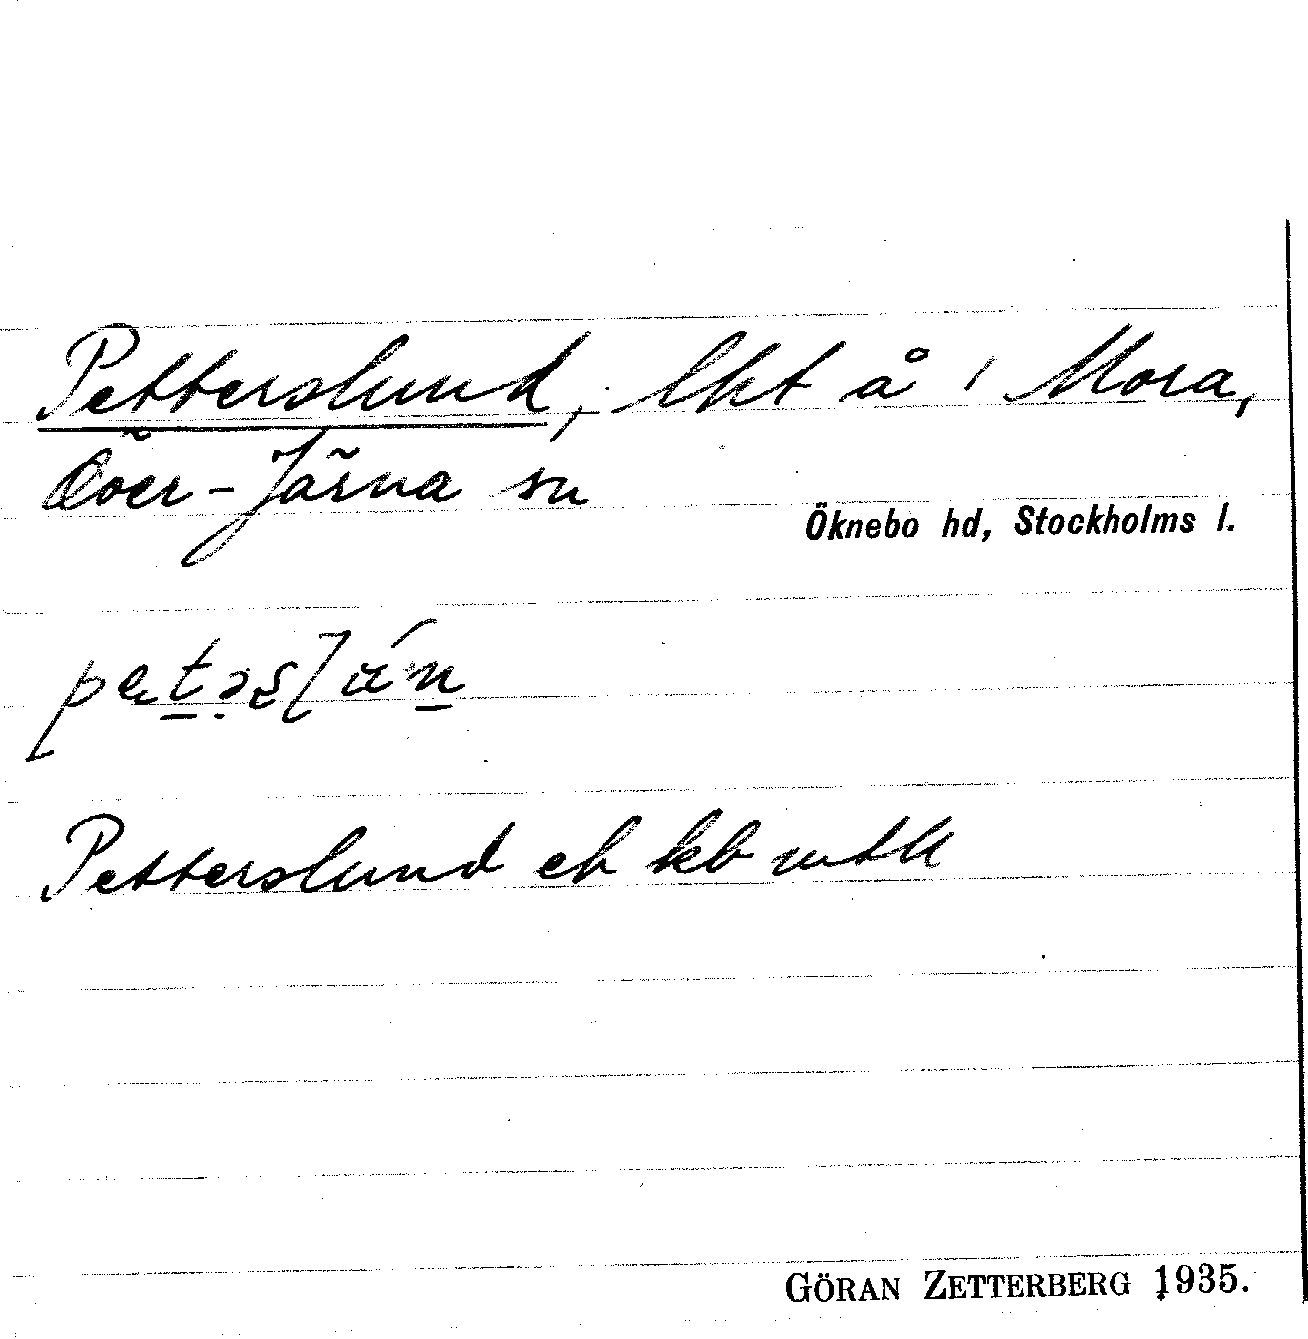 Petterslund, lht å 1 Mora,
Över-Järna sn
Öknebo hd, Stockholms l.
Petterslund ek kb mtlk
GÖRAN ZETTERBERG 1935.